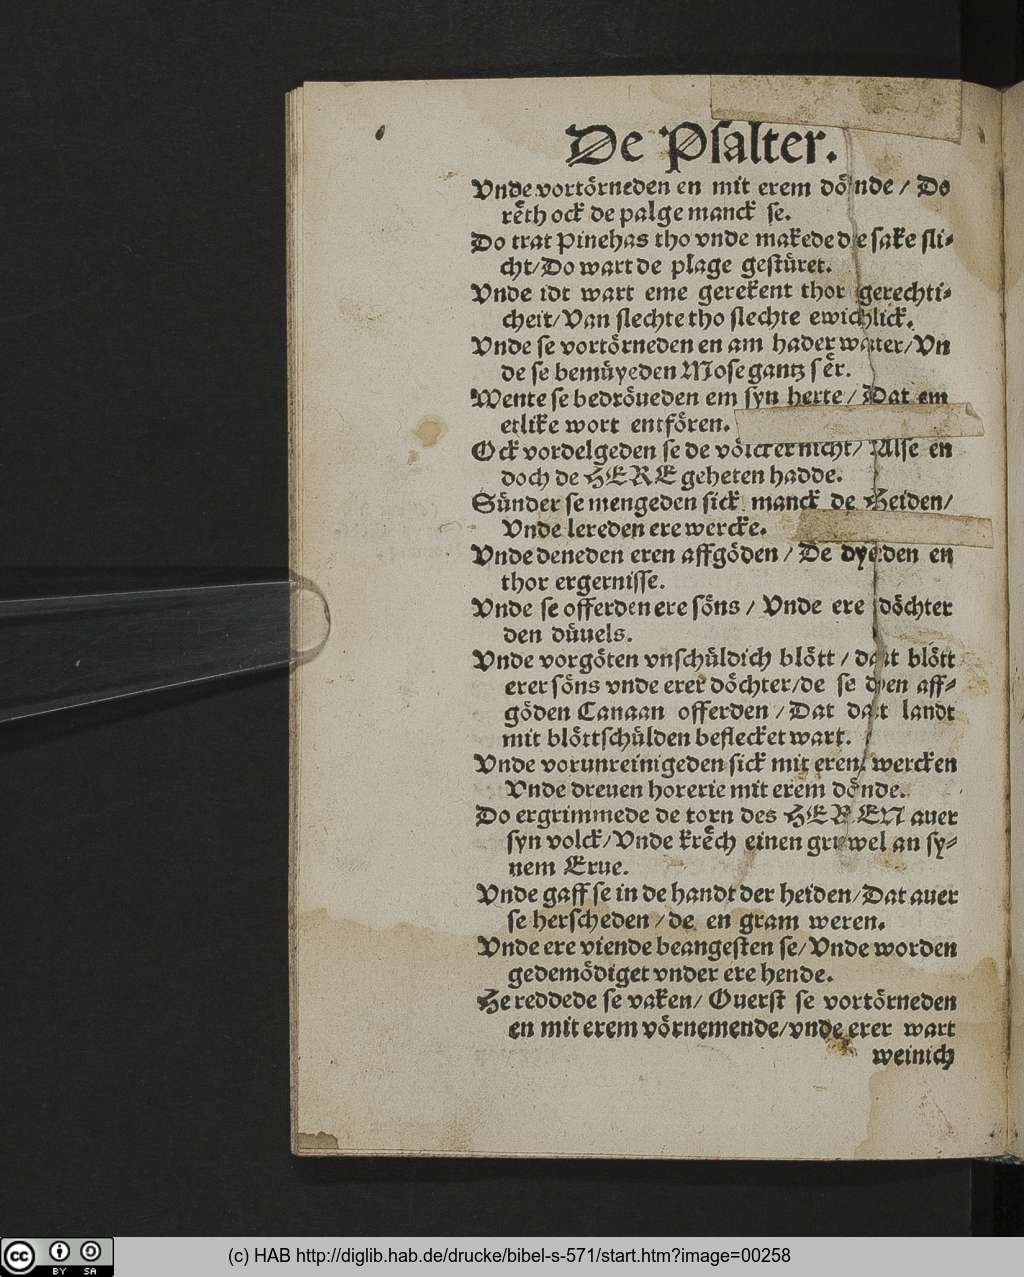 De Psalter.
Vnde vortörneden en mit erem dönde / Do
reth ock de palge manck se.
Do trat Pinehas tho vnde makede de sake sli-
cht/Do wart de plage gestüret.
Vnde idt wart eme gerekent thor gerechti-
cheit/Van slechte tho slechte ewichlick.
Vnde se vortörneden en am hader water/Vn
de se bemüyeden Mose gantz ser.
Wente se bedröueden em syn herte / Dat em
etlike wort entfören.
Ock vordelgeden se de völcker nicht/ Alse en
doch de HERE geheten hadde.
Sünder se mengeden sick manck de Heiden/
Vnde lereden ere wercke.
Vnde deneden eren affgöden / De dyeden en
thor ergernisse.
Vnde se offerden ere söns / Vnde ere döchter
den düuels.
Vnde vorgöten vnschüldich blött / dat blött
erer söns vnde erer döchter/de se den aff-
göden Canaan offerden / Dat dat landt
mit blöttschülden beflecket wart.
Vnde vorunreinigeden sick mit eren wercken
Vnde dreuen horerie mit erem dönde.
Do ergrimmede de torn des HEREN auer
syn volck/Vnde krech einen gruwel an sy-
nem Erue.
Vnde gaff se in de handt der heiden/Dat auer
se herscheden / de en gram weren.
Vnde ere viende beangesten se/Vnde worden
gedemödiget vnder ere hende.
He reddede se vaken/ Ouerst se vortörneden
en mit erem vörnemende/vnde erer wart
weinich
(c) HAB http://diglib.hab.de/drucke/bibel-s-571/start.htm?image=00258
cc BY SA